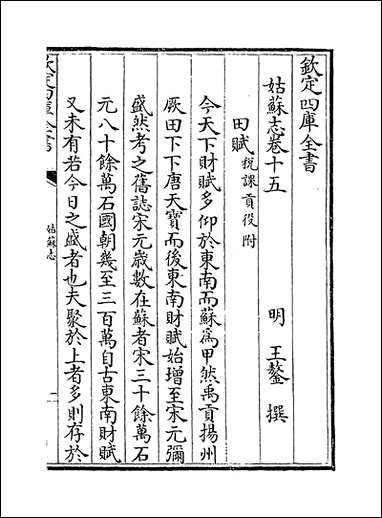 欽定四庫全書
姑蘇志卷十五
明 王鏊 撰
田賦 稅課貢役附
今天下財賦多仰於東南而蘇爲甲然禹貢揚州
厥田下下唐天寶而後東南財賦始增至宋元彌
盛然考之舊誌宋元歳數在蘇者宋三十餘萬石
元八十餘萬石國朝幾至三百萬自古東南財賦
又未有若今日之盛者也夫聚於上者多則存於
欽定四庫全書
姑蘇志